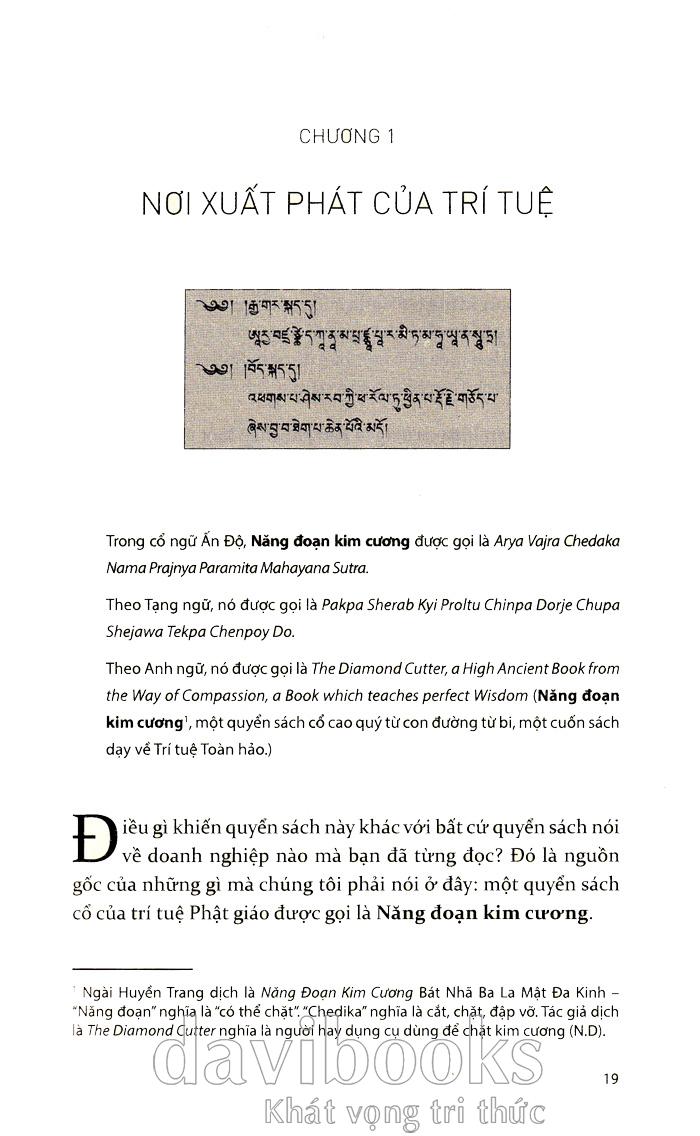 CHƯƠNG 1
NƠI XUẤT PHÁT CỦA TRÍ TUỆ
༄༅། །རྒྱ་གར་སྐད་དུ།
ཨཱརྱ་བཛྲ་ཙྪེད་ཀཱ་ནཱ་མ་པྲ་ཛྙཱ་པཱ་ར་མི་ཏ་མ་ཧཱ་ཡཱ་ན་སཱུ་ཏྲ།
༄༅། །བོད་སྐད་དུ།
འཕགས་པ་ཤེས་རབ་ཀྱི་ཕ་རོལ་ཏུ་ཕྱིན་པ་རྡོ་རྗེ་གཅོད་པ་
ཞེས་བྱ་བ་ཐེག་པ་ཆེན་པོའི་མདོ།
Trong cổ ngữ Ấn Độ, Năng đoạn kim cương được gọi là Arya Vajra Chedaka
Nama Prajnya Paramita Mahayana Sutra.
Theo Tạng ngữ, nó được gọi là Pakpa Sherab Kyi Proltu Chinpa Dorje Chupa
Shejawa Tekpa Chenpoy Do.
Theo Anh ngữ, nó được gọi là The Diamond Cutter, a High Ancient Book from
the Way of Compassion, a Book which teaches perfect Wisdom (Năng đoạn
kim cương¹, một quyển sách cổ cao quý từ con đường từ bi, một cuốn sách
dạy về Trí tuệ Toàn hảo.)
Điều gì khiến quyển sách này khác với bất cứ quyển sách nói
về doanh nghiệp nào mà bạn đã từng đọc? Đó là nguồn
gốc của những gì mà chúng tôi phải nói ở đây: một quyển sách
cổ của trí tuệ Phật giáo được gọi là Năng đoạn kim cương.
¹ Ngài Huyền Trang dịch là Năng Đoạn Kim Cương Bát Nhã Ba La Mật Đa Kinh –
"Năng đoạn" nghĩa là "có thể chặt". "Chedika" nghĩa là cắt, chặt, đập vỡ. Tác giả dịch
là The Diamond Cutter nghĩa là người hay dụng cụ dùng để chặt kim cương (N.D).
davibooks
Khát vọng tri thức
19